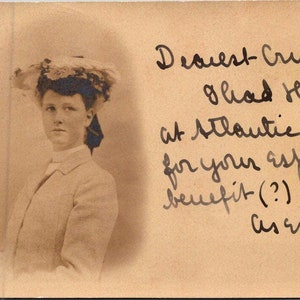 Dearest Cru
I had th
at Atlantic
for your esp
benefit (?)
as e